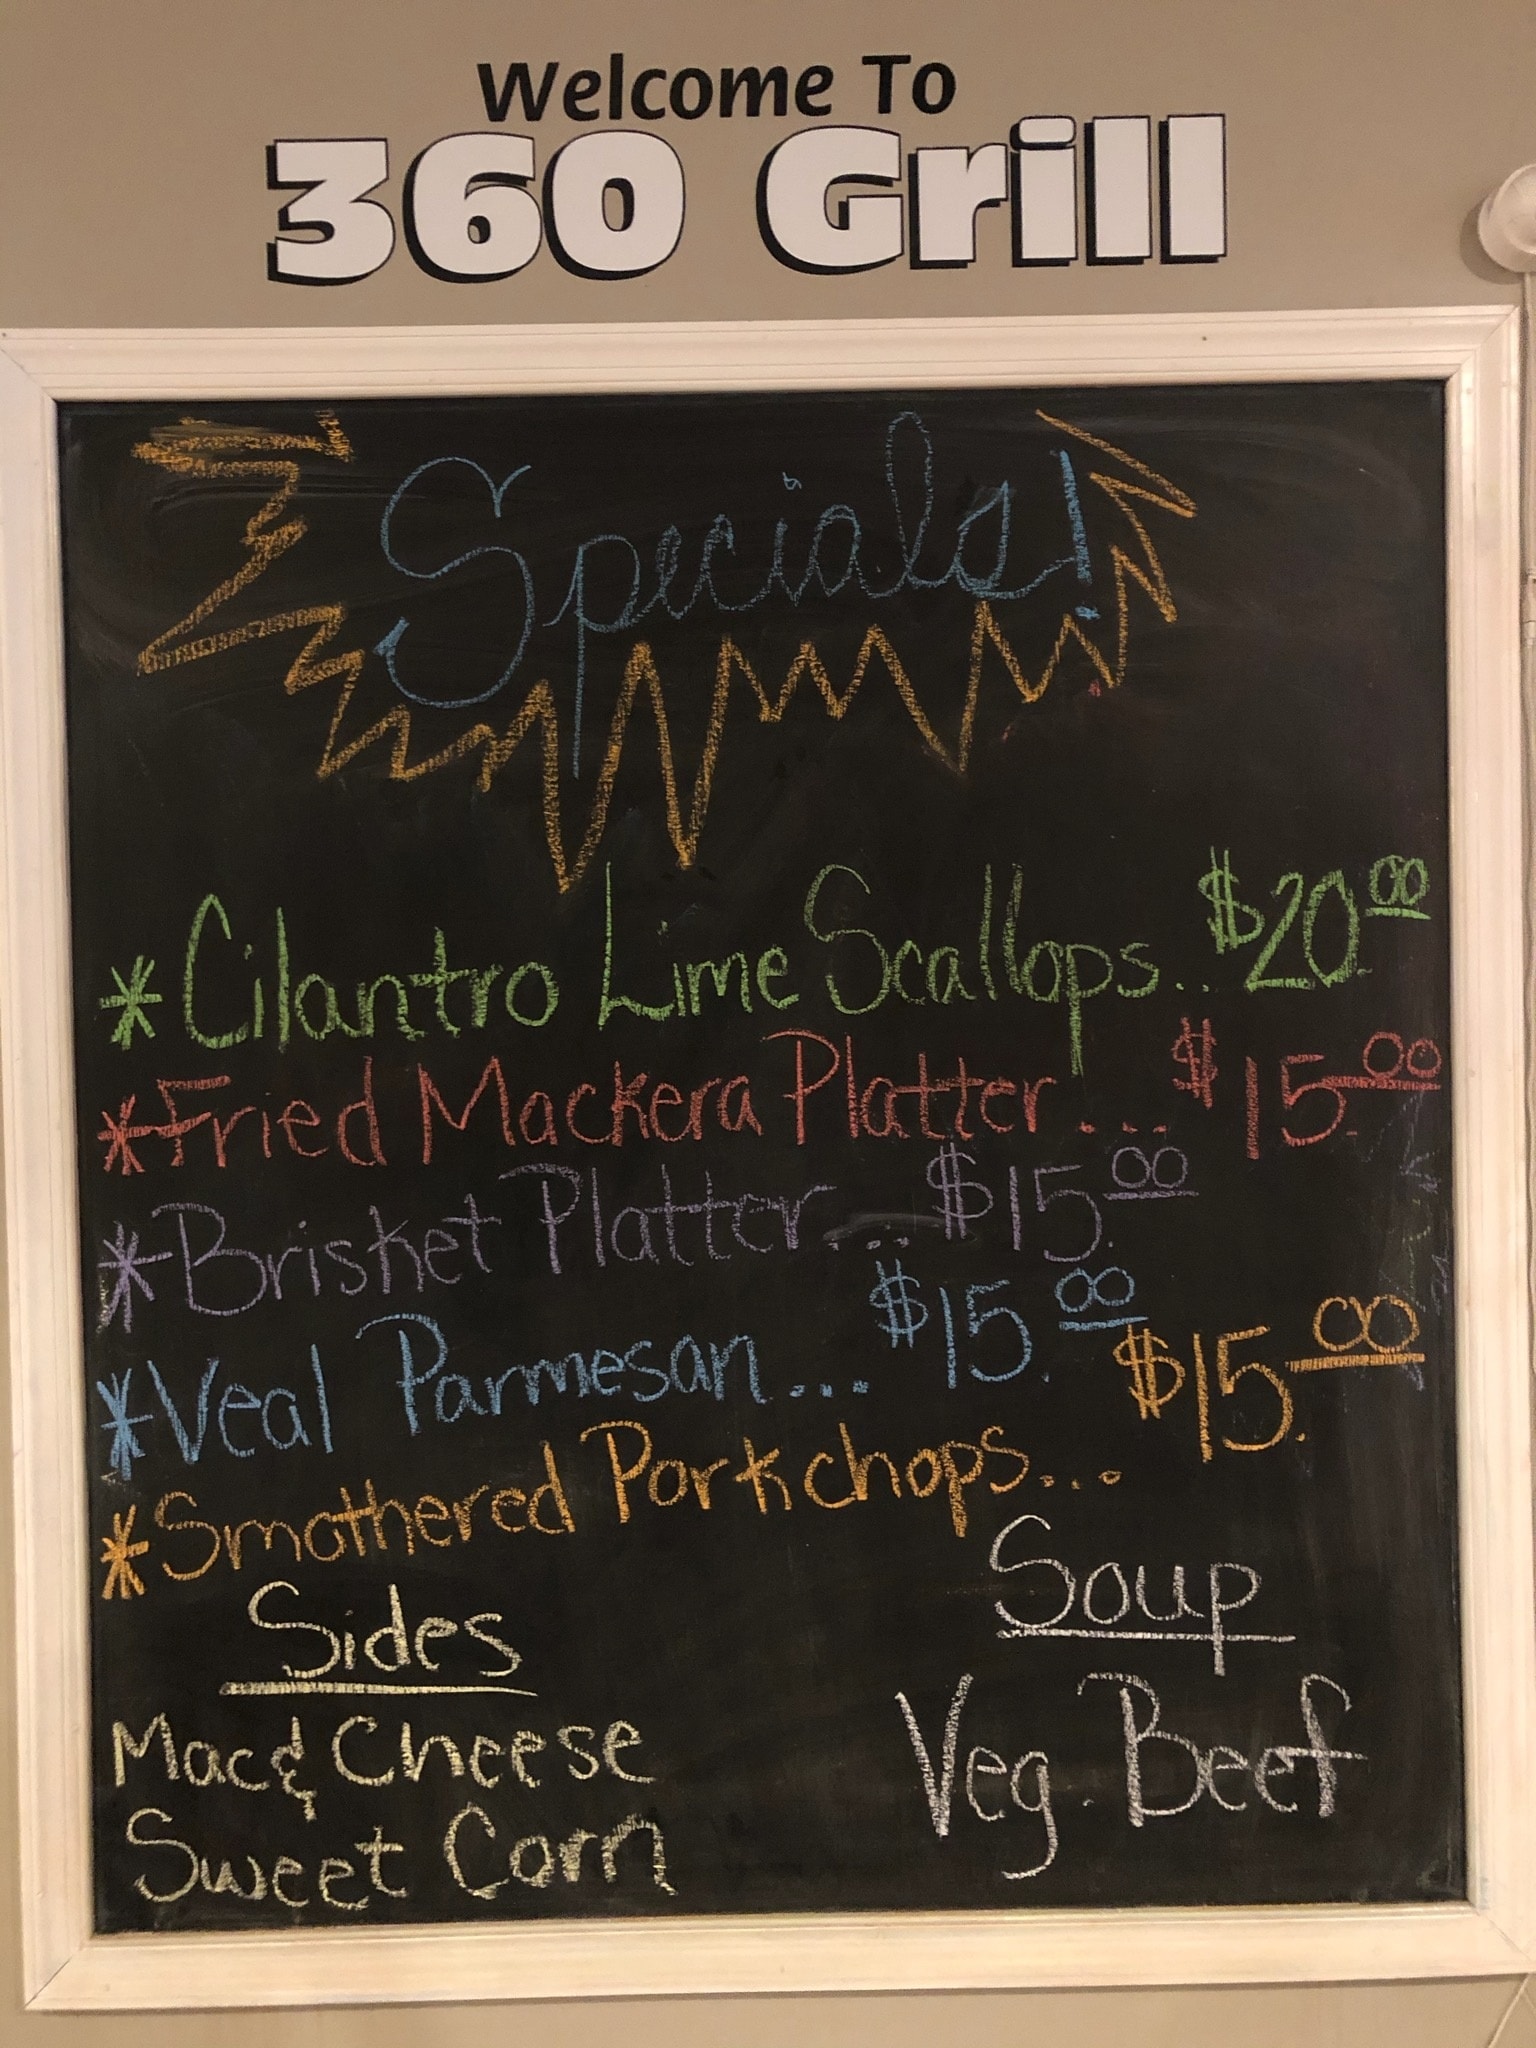 Welcome To
360 Grill
Specials!
*Cilantro Lime Scallops.. $20.00
*Fried Mackera Platter... $15.00
*Brisket Platter... $15.00
*Veal Parmesan... $15.00
*Smothered Porkchops... $15.00
Sides
Mac & Cheese
Sweet Corn
Soup
Veg. Beef